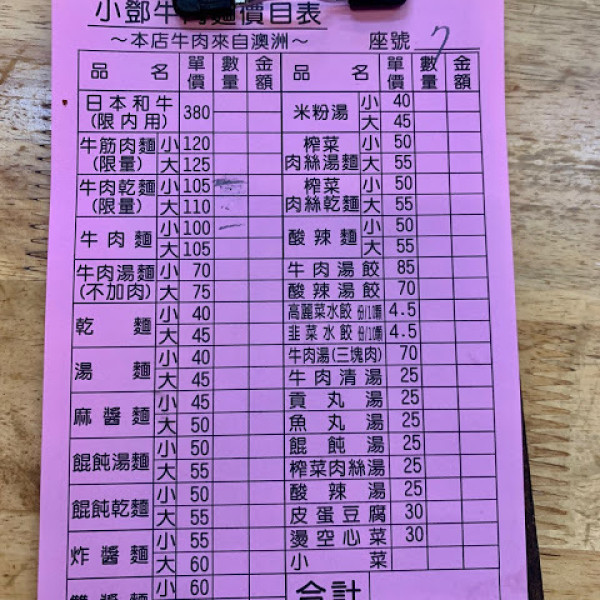 小鄧牛肉麵價目表
～本店牛肉來自澳洲～ 座號 7
品名 單價 數量 金額 品名 單價 數量 金額
日本和牛(限內用) 380 米粉湯 小 40
大 45
牛筋肉麵(限量) 小 120 榨菜肉絲湯麵 小 50
大 125 大 55
牛肉乾麵(限量) 小 105 榨菜肉絲乾麵 小 50
大 110 大 55
牛肉麵 小 100 酸辣麵 小 50
大 105 大 55
牛肉湯麵(不加肉) 小 70 牛肉湯餃 85
大 75 酸辣湯餃 70
乾麵 小 40 高麗菜水餃 4.5
大 45 韭菜水餃 4.5
湯麵 小 40 牛肉湯(三塊肉) 70
大 45 牛肉清湯 25
麻醬麵 小 45 貢丸湯 25
大 50 魚丸湯 25
餛飩湯麵 小 50 餛飩湯 25
大 55 榨菜肉絲湯 25
餛飩乾麵 小 50 酸辣湯 25
大 55 皮蛋豆腐 30
炸醬麵 小 55 燙空心菜 30
大 60 小菜
小 60 合計